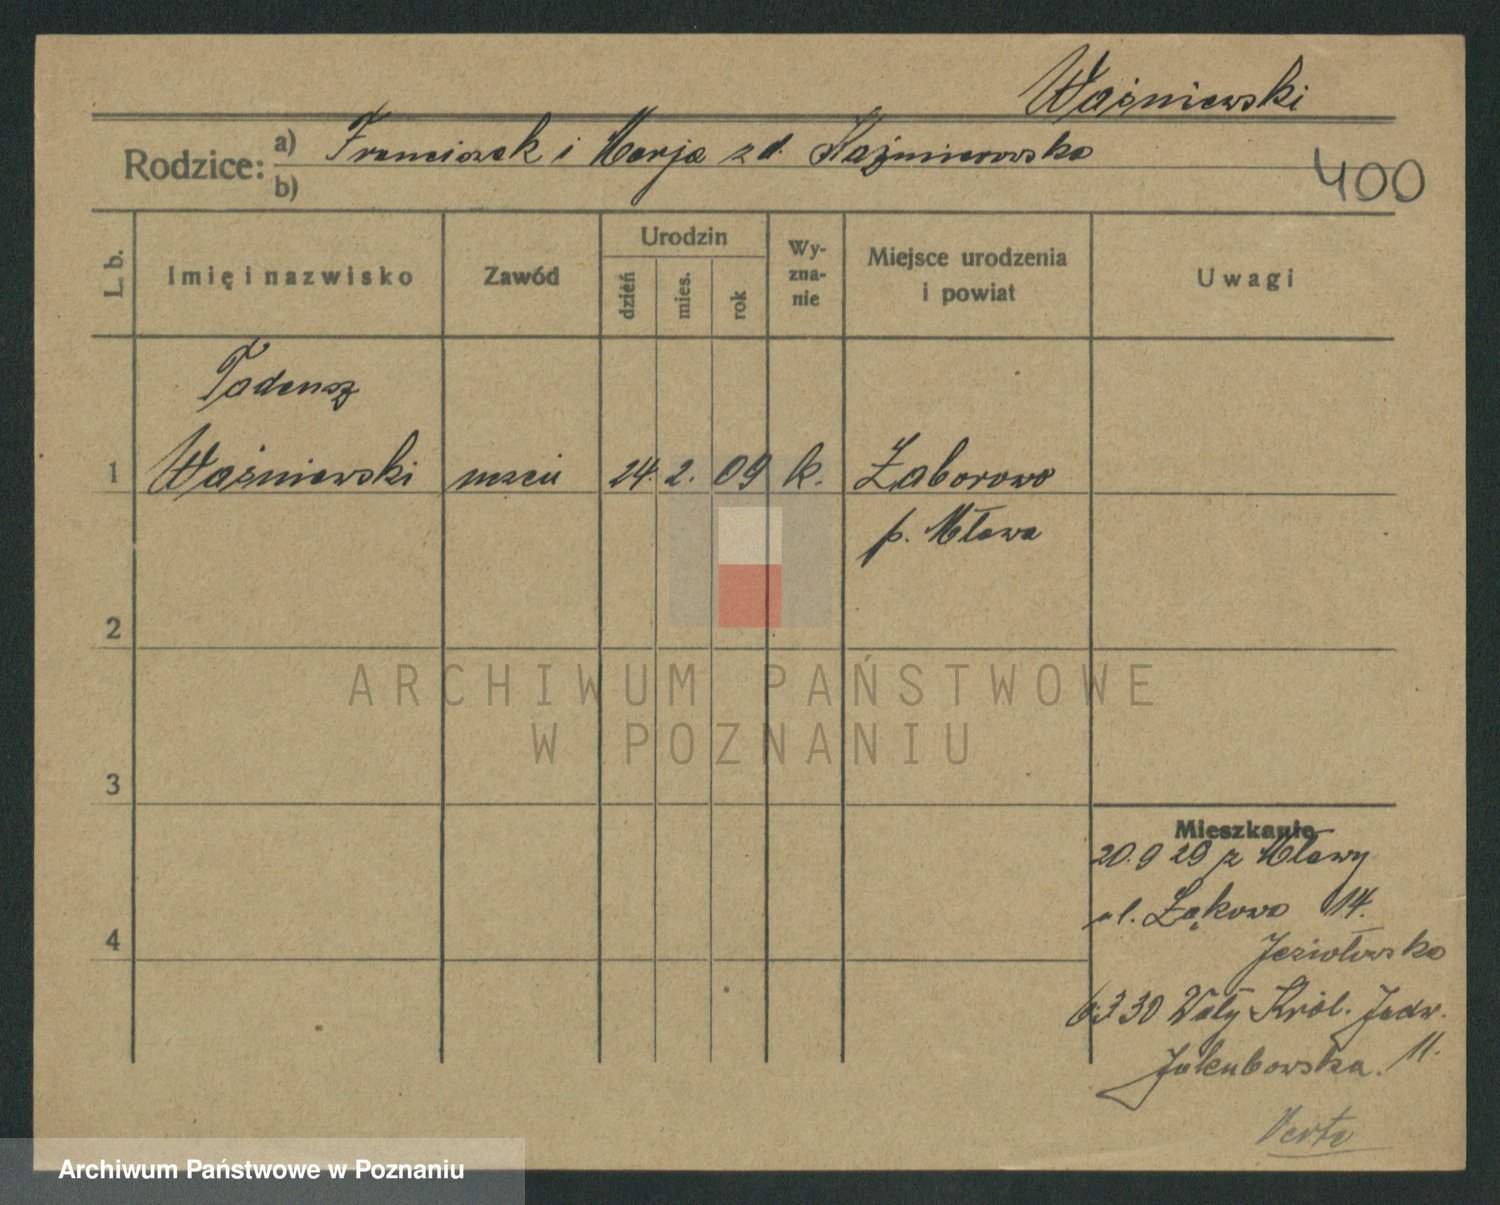 Waśniewski
Rodzice: a) Franciszek i Marja z d. Kaźmierowska
b)
400
L. b.
Imię i nazwisko
Zawód
Urodzin
dzień
mies.
rok
Wy-
zna-
nie
Miejsce urodzenia
i powiat
Uwagi
Tadeusz
1 Waśniewski uczeń 24. 2. 09 k. Zaborowo
p. Mława
2
ARCHIWUM PAŃSTWOWE
W POZNANIU
3
Mieszkanie
20.9 29 z Mławy
ul. Łąkowa 14.
4
Jeziołowska
6.3 30 Wały Król. Jadw.
11.
Jakubowska.
Verte
Archiwum Państwowe w Poznaniu